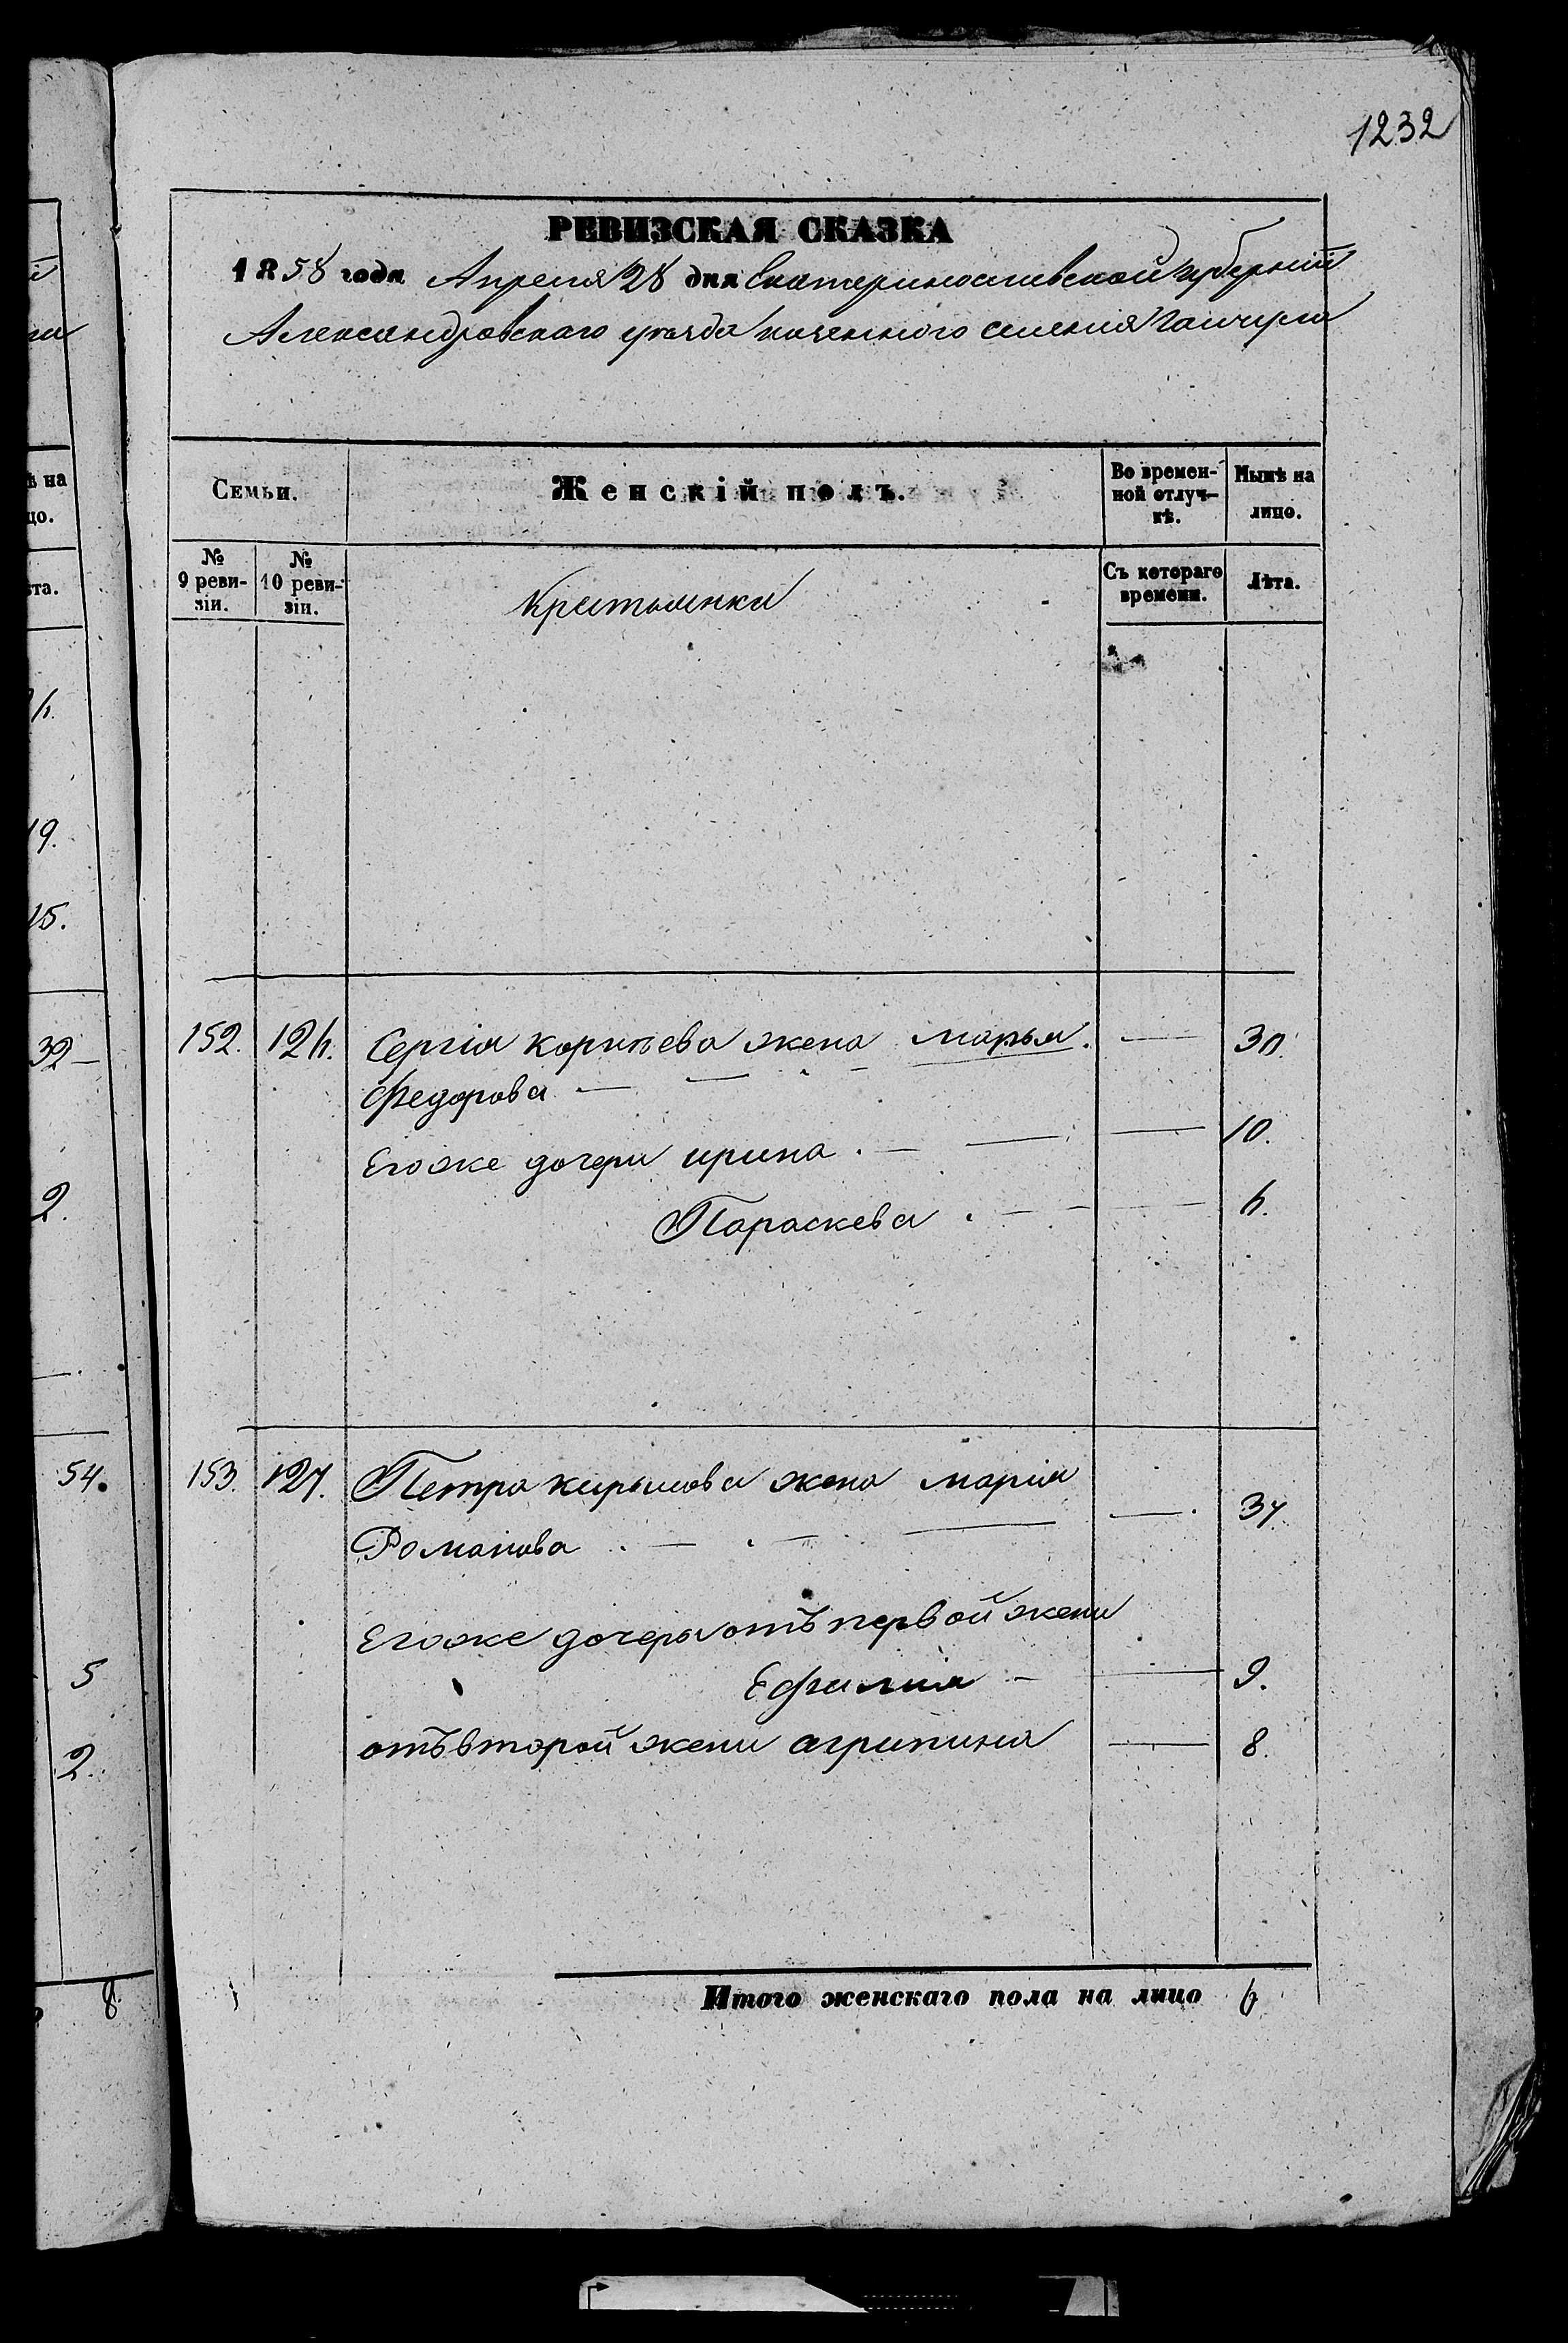 1232
РЕВИЗСКАЯ СКАЗКА
1858 года Апреля 28 дня Екатеринославской губерніи
Александровскаго уѣзда казенного селения Гайчула
Семьи.
Женскій полъ.
Во времен-
ной отлуч-
кѣ.
Нынѣ на
лицо.
№
9 реви-
зіи.
№
10 реви-
зіи.
Крестьянки
Съ котораго
времени.
Лѣта.
152. 126. Сергія корнѣева жена марья. — 30.
Федорова —
Егоже дочери ирина. — — 10.
Параскева. — — 6.
153. 127. Петра кирылова жена марія
Романова — — 37.
Егоже дочеры отъ первой жени
Ефимия — — 9.
отъ второй жени агрипина — 8.
Итого женскаго пола на лицо 6
ѣ на
цо.
ѣта.
19.
15.
32 —
2.
54.
5
2.
8